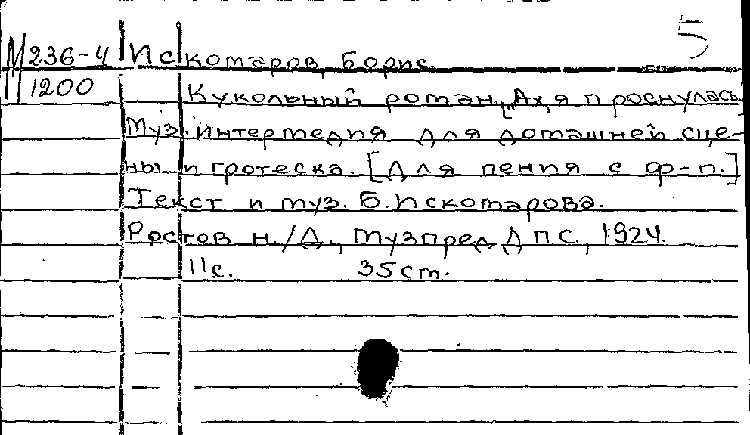 5
М 236-4 Искомаров, Борис.
1200 Кукольный роман. [Ах, я проснулась]
Муз. интермедия для домашней сце-
ны и гротеска. [Для пения с ф-п.]
Текст и муз. Б. Искомарова.
Ростов н./Д., Музпред ДПС, 1924.
11с. 35см.